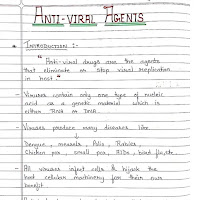 ANTI-VIRAL AGENTS
- INTRODUCTION :-
"Anti-viral drugs are the agents
that eliminate or stop viral replication
in host"
- Viruses contain only one type of nucleic
acid as a genetic material which is
either RNA or DNA.
- Viruses produce many diseases like
Dengue, measels, Polio, Rabies,
Chicken pox, small pox, AIDs, bird flu, etc.
- All viruses infect cells & hijack the
host cellular machinery for their own
benefit